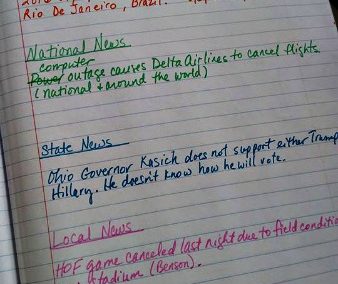 Rio De Janeiro, Brazil.
National News
computer
Power outage causes Delta Airlines to cancel flights
(national + around the world)
State News
Ohio Governor Kasich does not support either Trump
Hillary. He doesn't know how he will vote.
Local News
HOF game canceled last night due to field conditio
stadium (Benson).